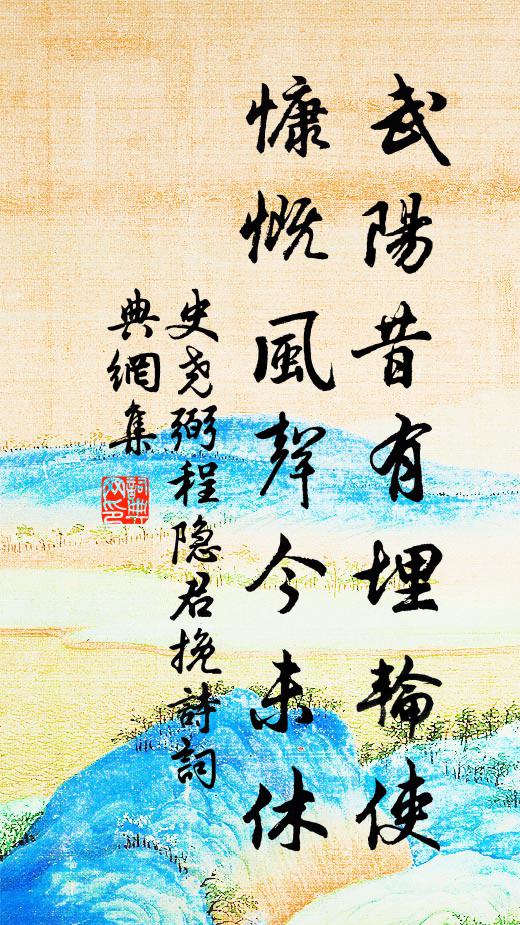 武陽昔有埋輪使
慷慨風聲今未休
史尧弼程隐君挽詩詞
典網集
詞典